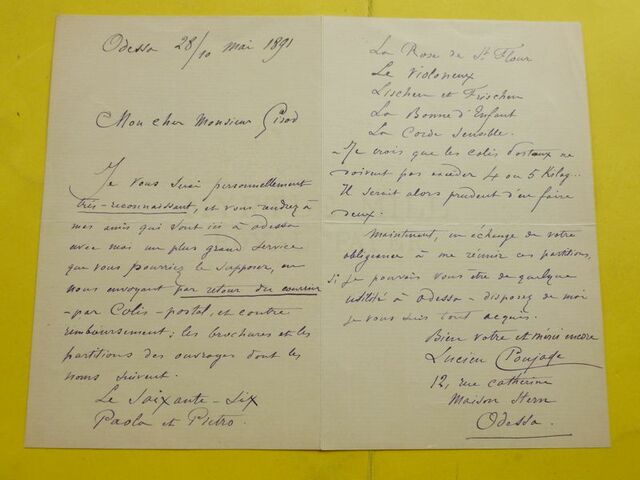 Odessa 28/10 mai 1891
Mon cher Monsieur Girod
Je vous serai personnellement
très-reconnaissant, et vous rendrez à
mes amis qui sont ici à Odessa
avec moi un plus grand service
que vous pourriez le supposer, en
nous envoyant par retour du courrier
- par Colis-postal, et contre
remboursement; les brochures et les
partitions des ouvrages dont les
noms suivent.
Le Soixante-Six
Paola et Pietro.
La Rose de St Flour
Le Violoneux
Lischen et Frischen
La Bonne d'Enfant
La Corde sensible.
- Je crois que les colis postaux ne
doivent pas excéder 4 ou 5 Kilog.
Il serait alors prudent d'en faire
deux.
Maintenant, en échange de votre
obligeance à me réunir ces partitions,
si je pouvais vous être de quelque
utilité à Odessa - disposez de moi
je vous suis tout acquis.
Bien votre et merci encore
Lucien Poujade
12, rue Catherine
Maison Stern
Odessa.